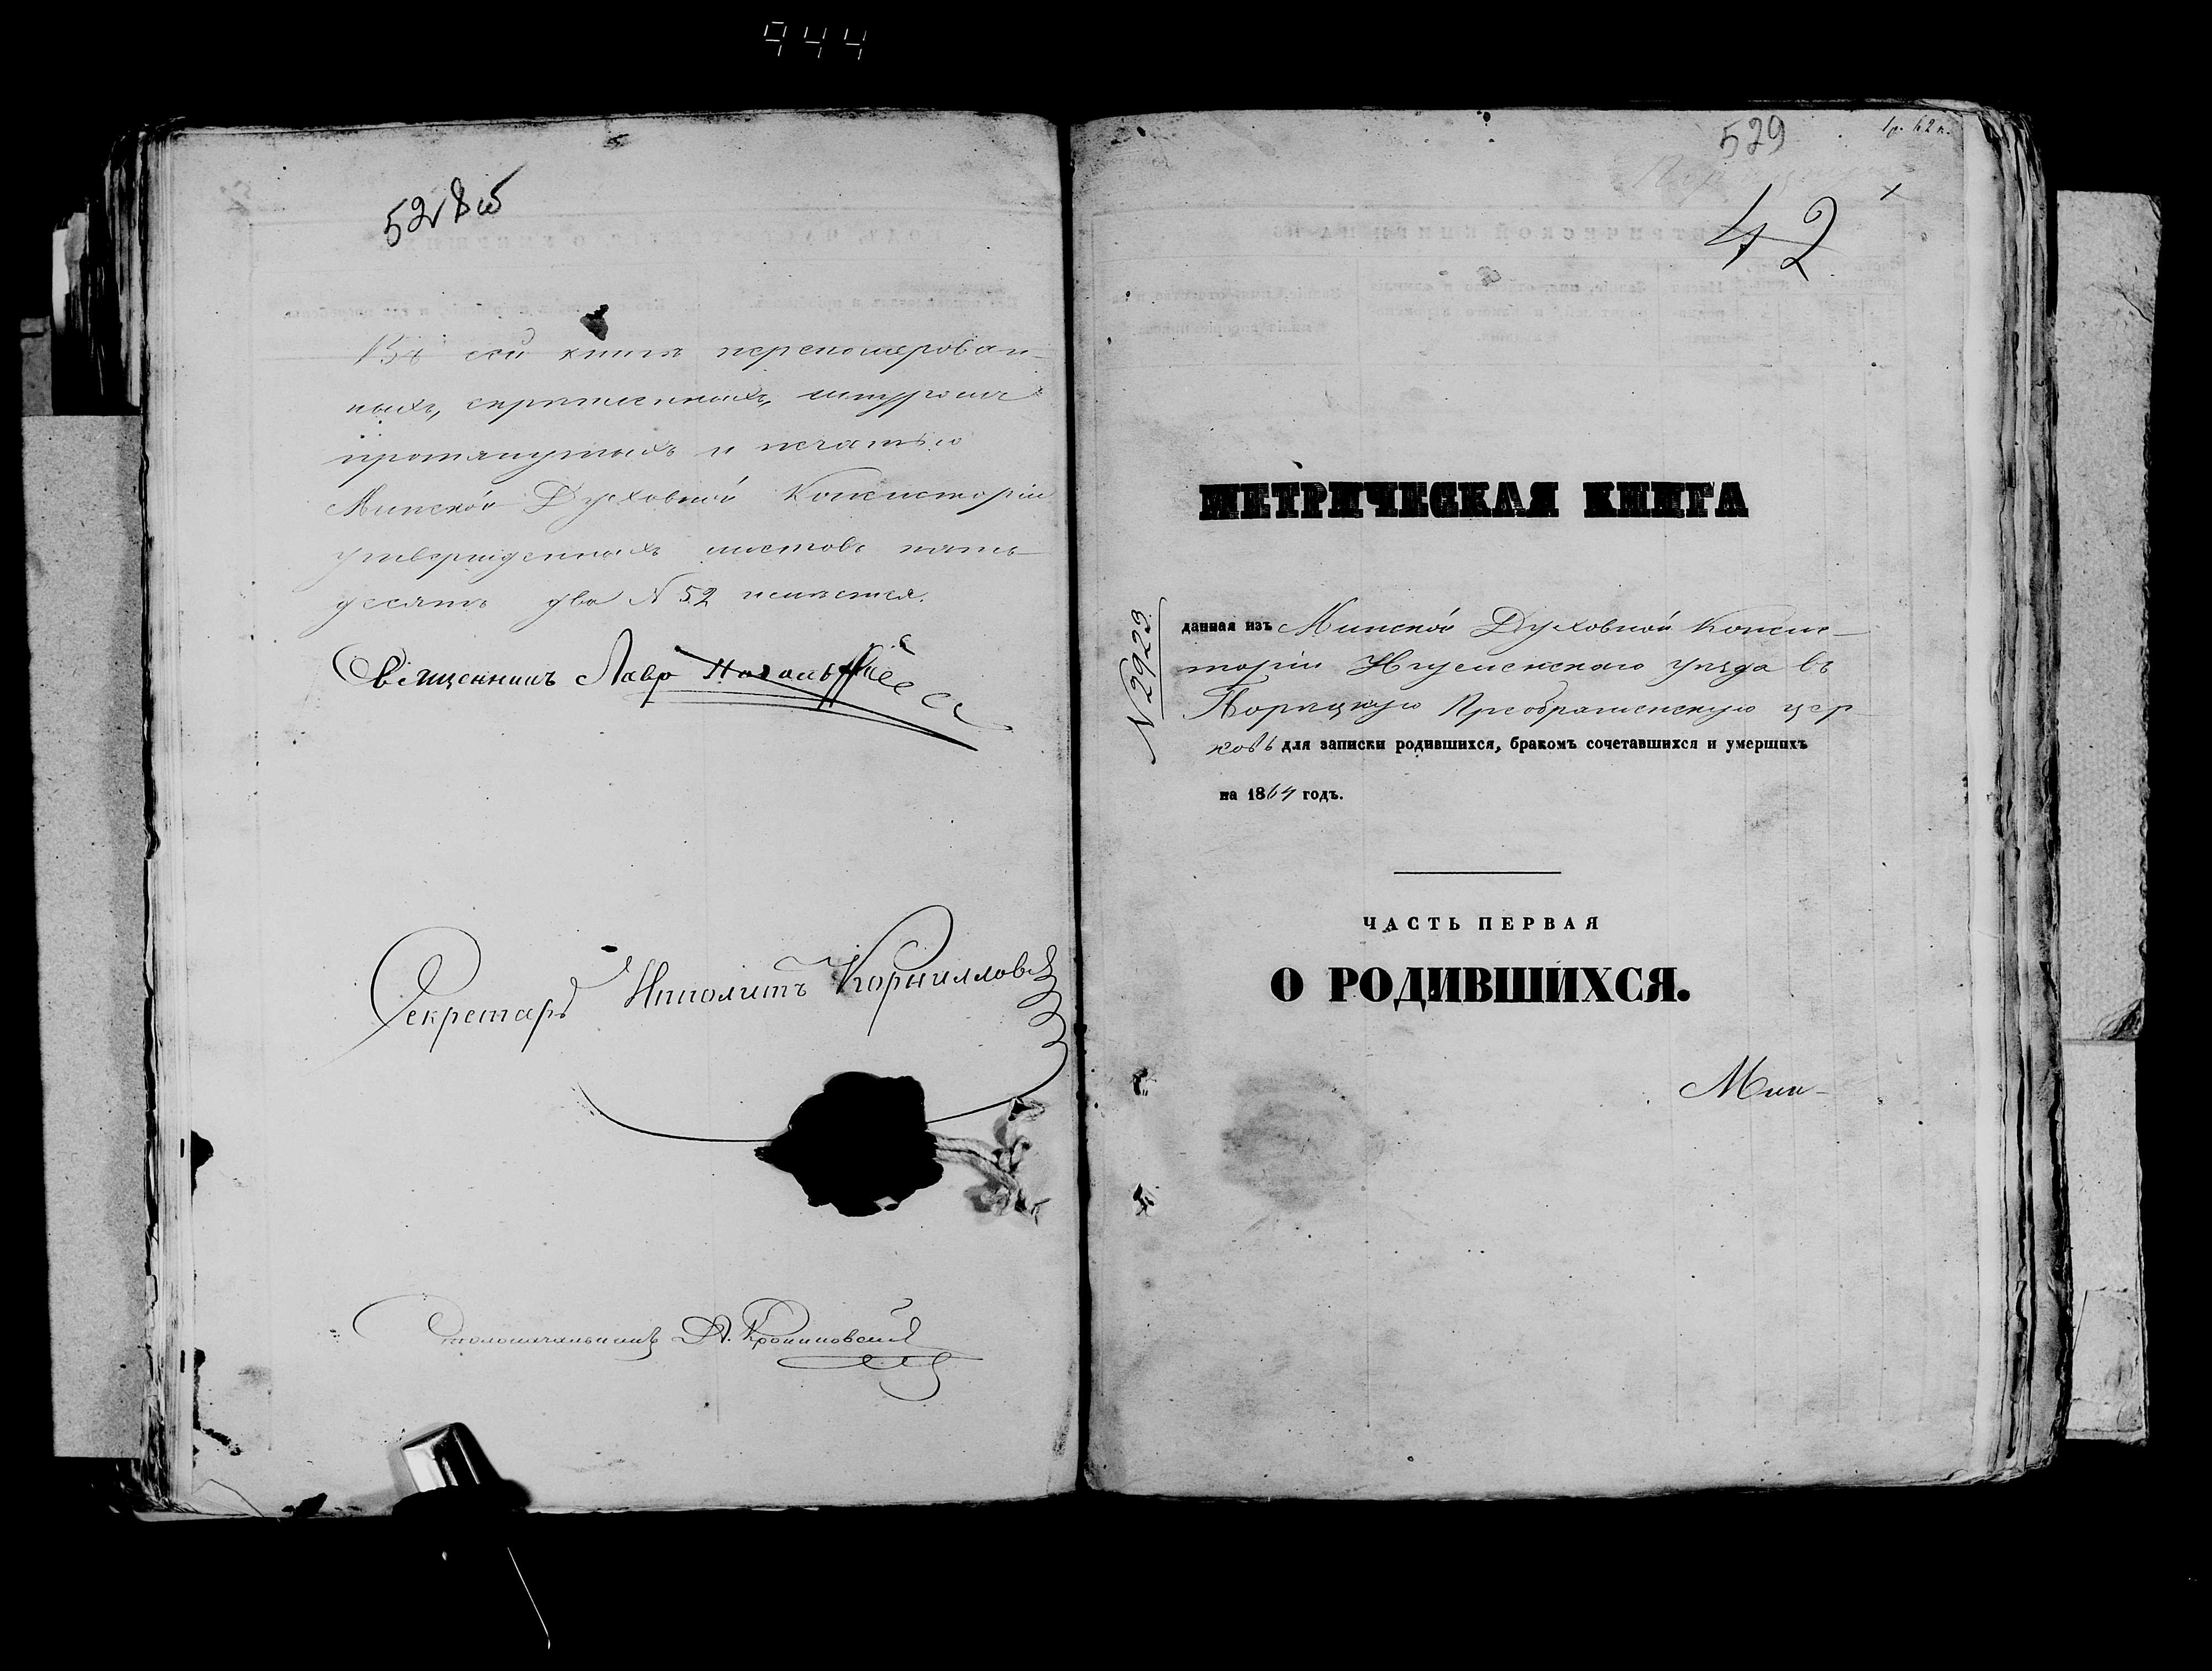 444
528 об
Въ сей книгѣ переномерован-
ныхъ, скрѣпленныхъ, шнуромъ
протянутыхъ и печатью
Минской Духовной Консисторіи
утвержденныхъ листовъ пять-
десятъ два N 52 имѣется.
Священникъ Лавр
Секретарь Ипполитъ Корниллов
Столоначальникъ А.
529
1р. 62 к.
42
МЕТРИЧЕСКАЯ КНИГА
N 2923.
данная изъ Минской Духовной Консис-
торіи Игуменскаго уѣзда въ
Порѣцкую Преображенскую цер-
ковь для записки родившихся, бракомъ сочетавшихся и умершихъ
на 1864 годъ.
ЧАСТЬ ПЕРВАЯ
О РОДИВШИХСЯ.
Мин-